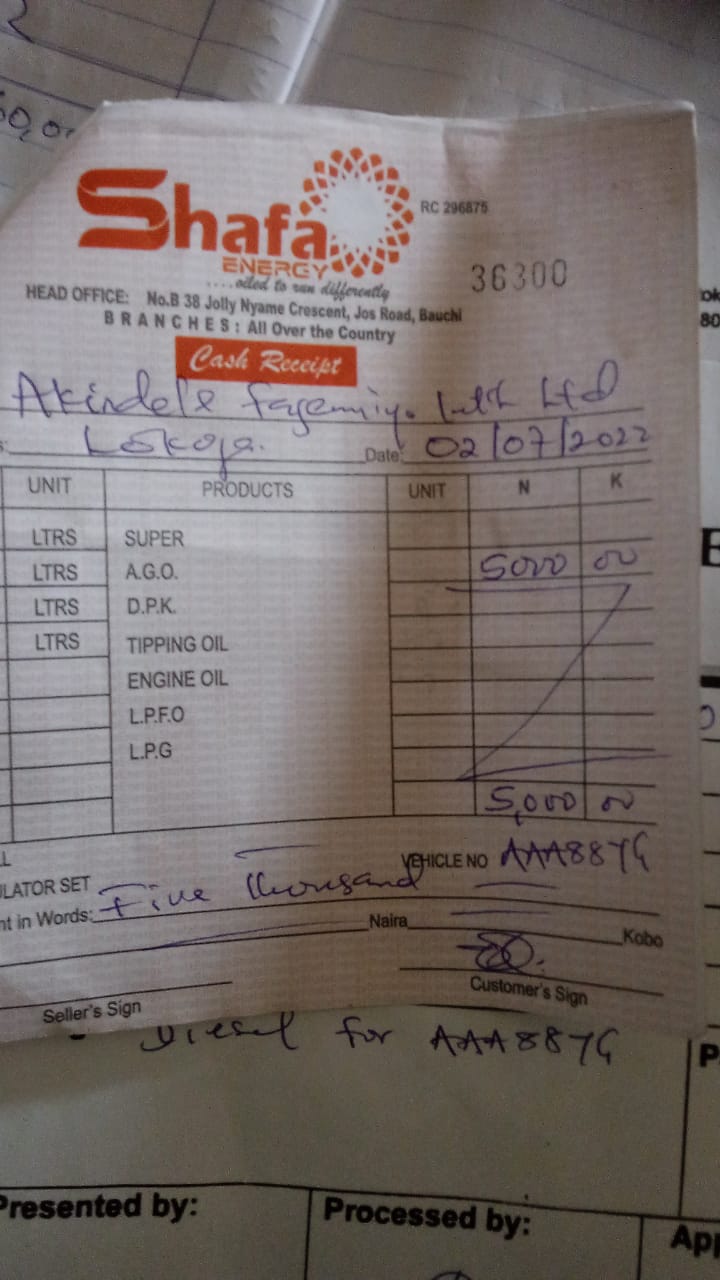 50,0
Shafa
ENERGY
....oiled to run differently
RC 296875
36300
HEAD OFFICE: No.B 38 Jolly Nyame Crescent, Jos Road, Bauchi
BRANCHES: All Over the Country
Cash Receipt
Akindele Fagemiyo Ltd
Lokoja. Date: 02/07/2022
UNIT PRODUCTS UNIT N K
LTRS SUPER
LTRS A.G.O. 5000 00
LTRS D.P.K.
LTRS TIPPING OIL
ENGINE OIL
L.P.F.O
L.P.G
5,000 00
VEHICLE NO AAA887G
ULATOR SET
nt in Words: Five thousand
Naira Kobo
Seller's Sign Customer's Sign
- Diesel for AAA887G
Presented by: Processed by: App